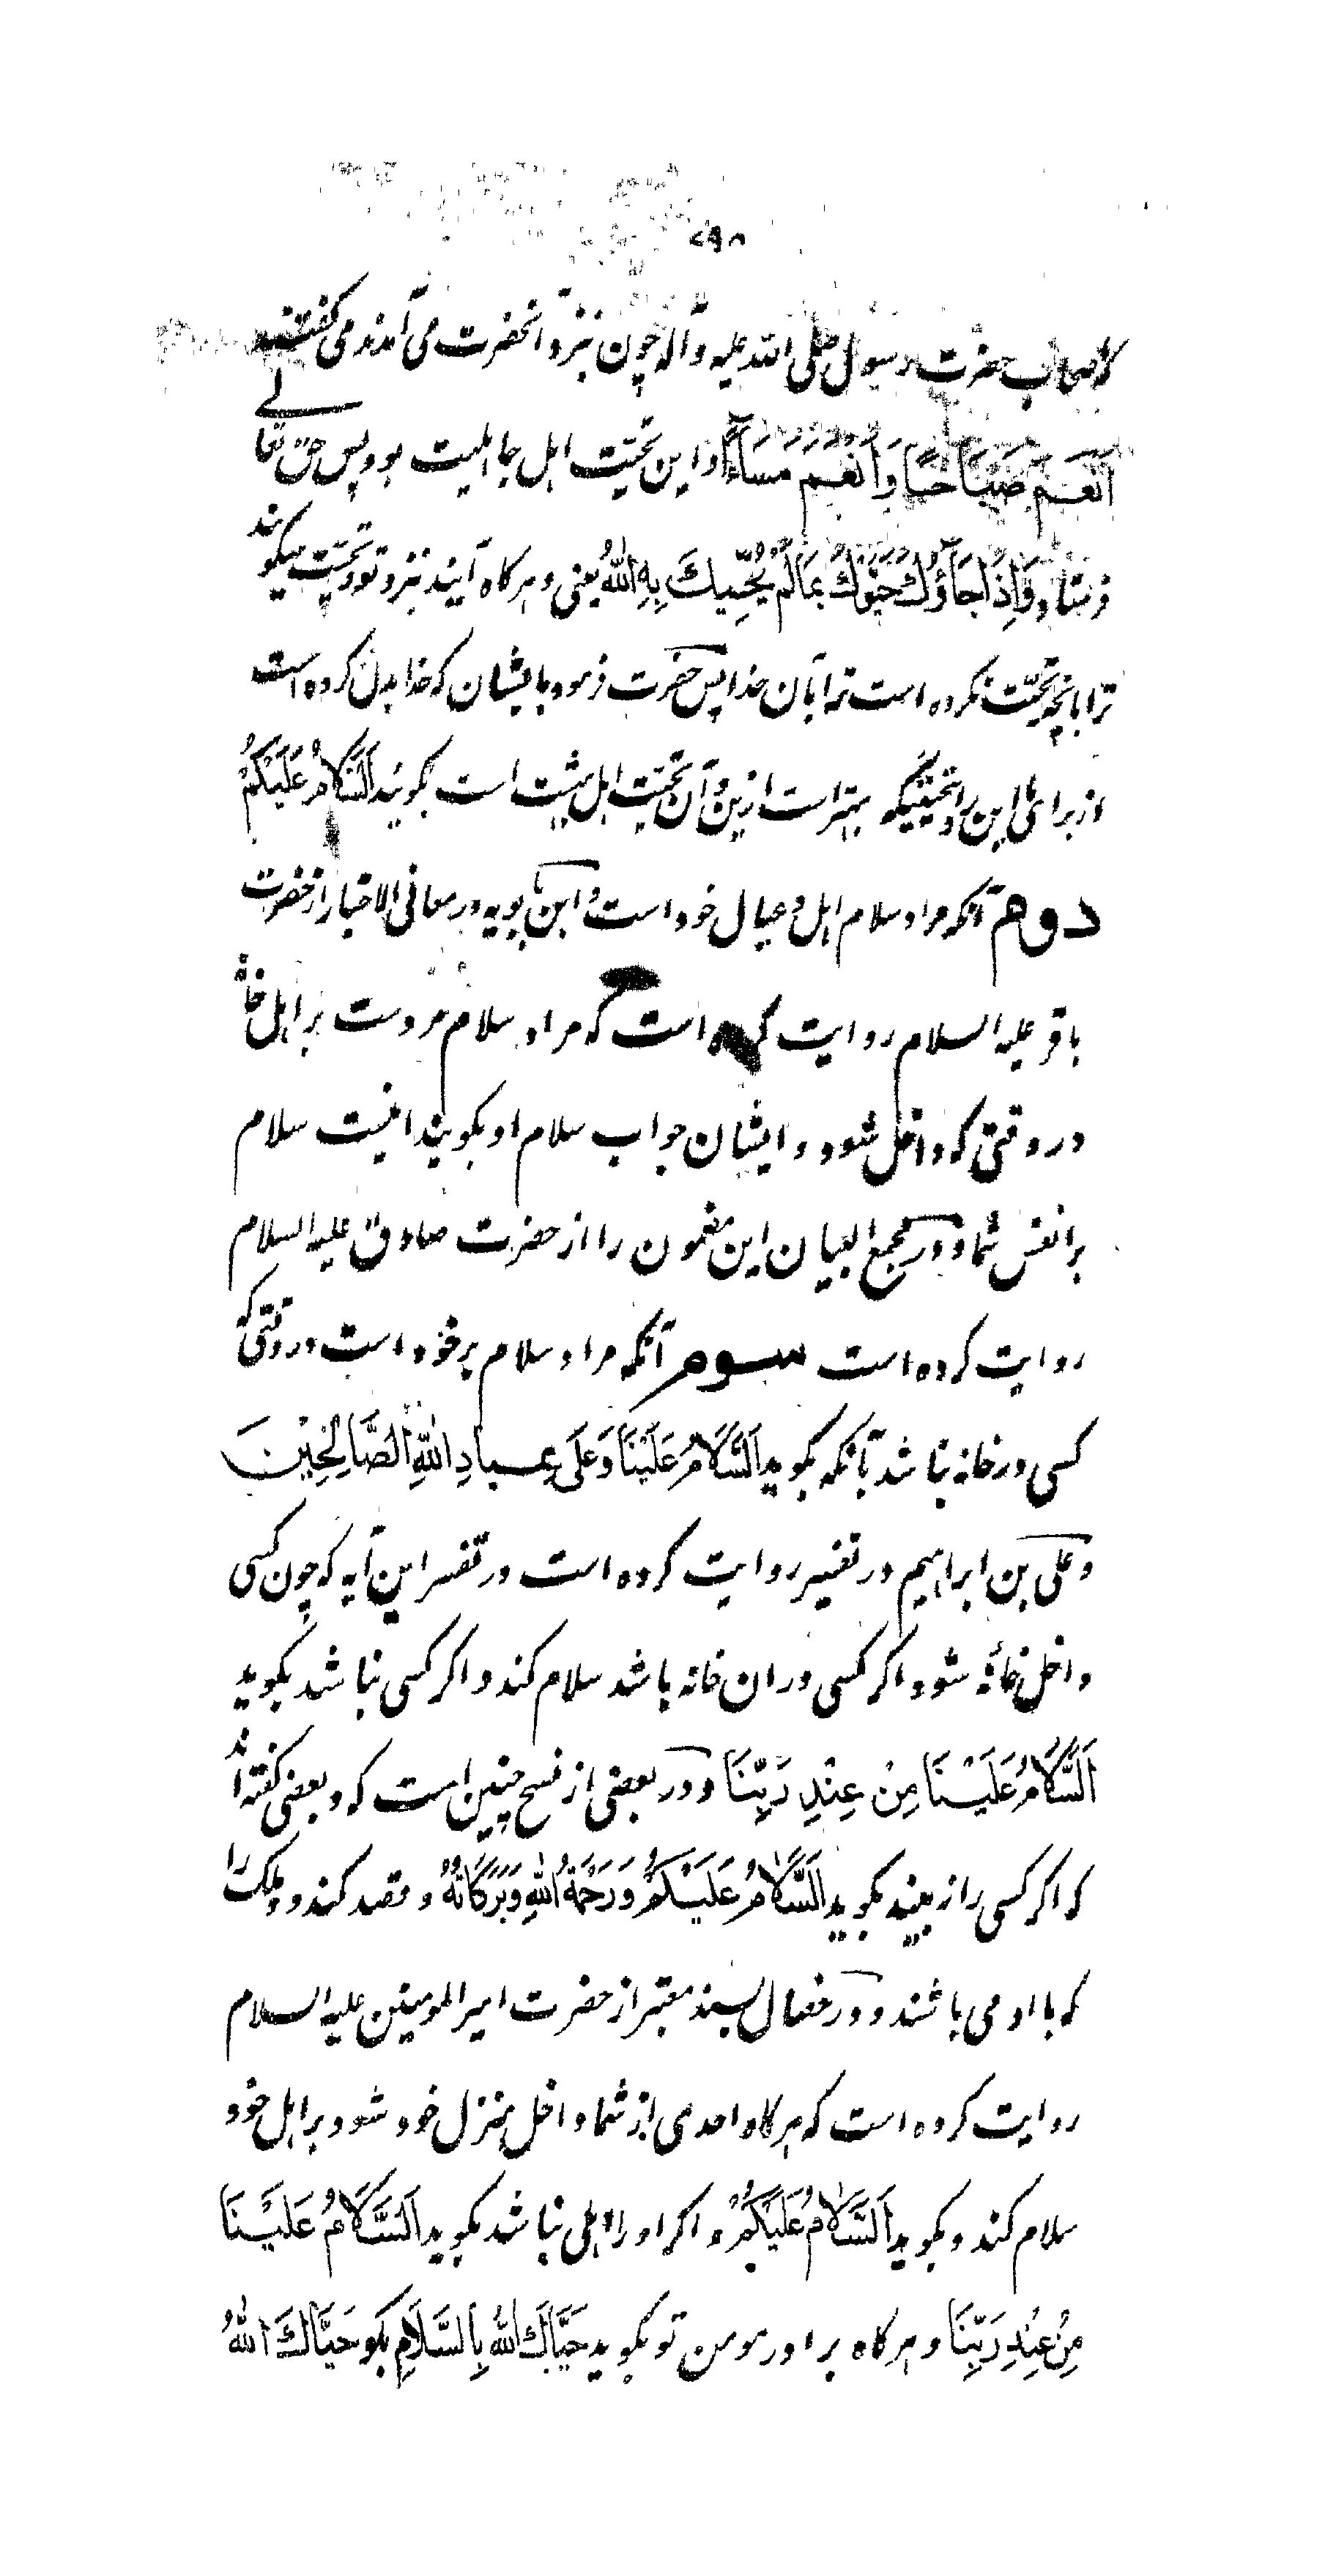 ۲۹۸
که اصحاب حضرت رسول صلی الله علیه و آله چون بنزد آنحضرت می آمدند می کفتند
اَنْعَمْ صَبَاحًا وَاَنْعَمْ مَسَاءً و این تحیّت اهل جاهلیت بود پس حق تعالے
فرستاد وَاِذَا جَاؤُكَ حَيَّوْكَ بِمَا لَمْ يُحَيِّيكَ بِهِ اللهُ یعنی و هرکاه آیند بنزد تو تحیّت میکویند
ترا بانچه تحیّت نکرده است ترا بآن خدا پس حضرت فرمود بایشان که خدا بدل کرده است
از برای ما این را به تحیّتیکه بهتر است ازین و آن تحیّت اهل بهشت است بکویند اَلسَّلَامُ عَلَيْكُمْ
دوم آنکه مراد سلام اهل و عیال خود است و ابن بابویه در معانی الاخبار از حضرت
باقر علیه السلام روایت کرده است که مراد سلام مردست بر اهل خانه
در وقتی که داخل شود و ایشان جواب سلام او بکویند اینست سلام
بر انفس شما و در مجمع البیان این مضمون را از حضرت صادق علیه السلام
روایت کرده است سوم آنکه مراد سلام بر خود است در وقتی که
کسی در خانه نباشد بآنکه بکوید اَلسَّلَامُ عَلَيْنَا وَعَلَى عِبَادِ اللهِ الصَّالِحِيْنَ
و علی بن ابراهیم در تفسیر روایت کرده است در تفسیر این آیه که چون کسی
داخل خانهٔ شود اکر کسی در ان خانه باشد سلام کند و اکر کسی نباشد بکوید
اَلسَّلَامُ عَلَيْنَا مِنْ عِنْدِ رَبِّنَا و در بعضی از نسخ چنین است که و بعضی کفته اند
که اکر کسی را نه بیند بکوید اَلسَّلَامُ عَلَيْكُمْ وَرَحْمَةُ اللهِ وَبَرَكَاتُهُ و قصد کند دو ملک را
که با او می باشند و در خصال بسند معتبر از حضرت امیر المومنین علیه السلام
روایت کرده است که هرکاه احدی از شما داخل منزل خود شود بر اهل خود
سلام کند و بکوید اَلسَّلَامُ عَلَيْكُمْ و اکر او را اهلی نباشد بکوید اَلسَّلَامُ عَلَيْنَا
مِنْ عِنْدِ رَبِّنَا و هرکاه برادر مومن تو بکوید حَيَّاكَ اللهُ بِالسَّلَامِ بکو حَيَّاكَ اللهُ